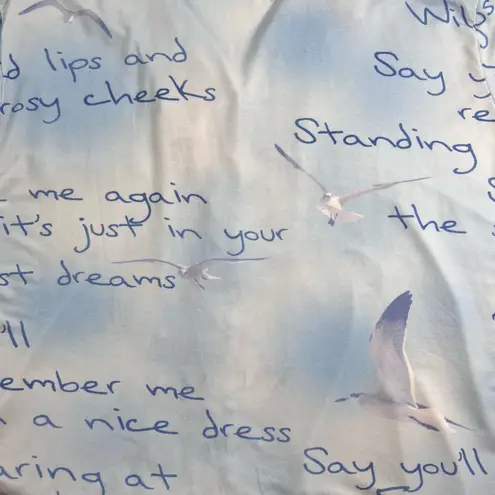 d lips and
rosy cheeks
me again
it's just in your
st dreams
'll
ember me
a nice dress
aring at
Say
re
Standing
the
Say you'll